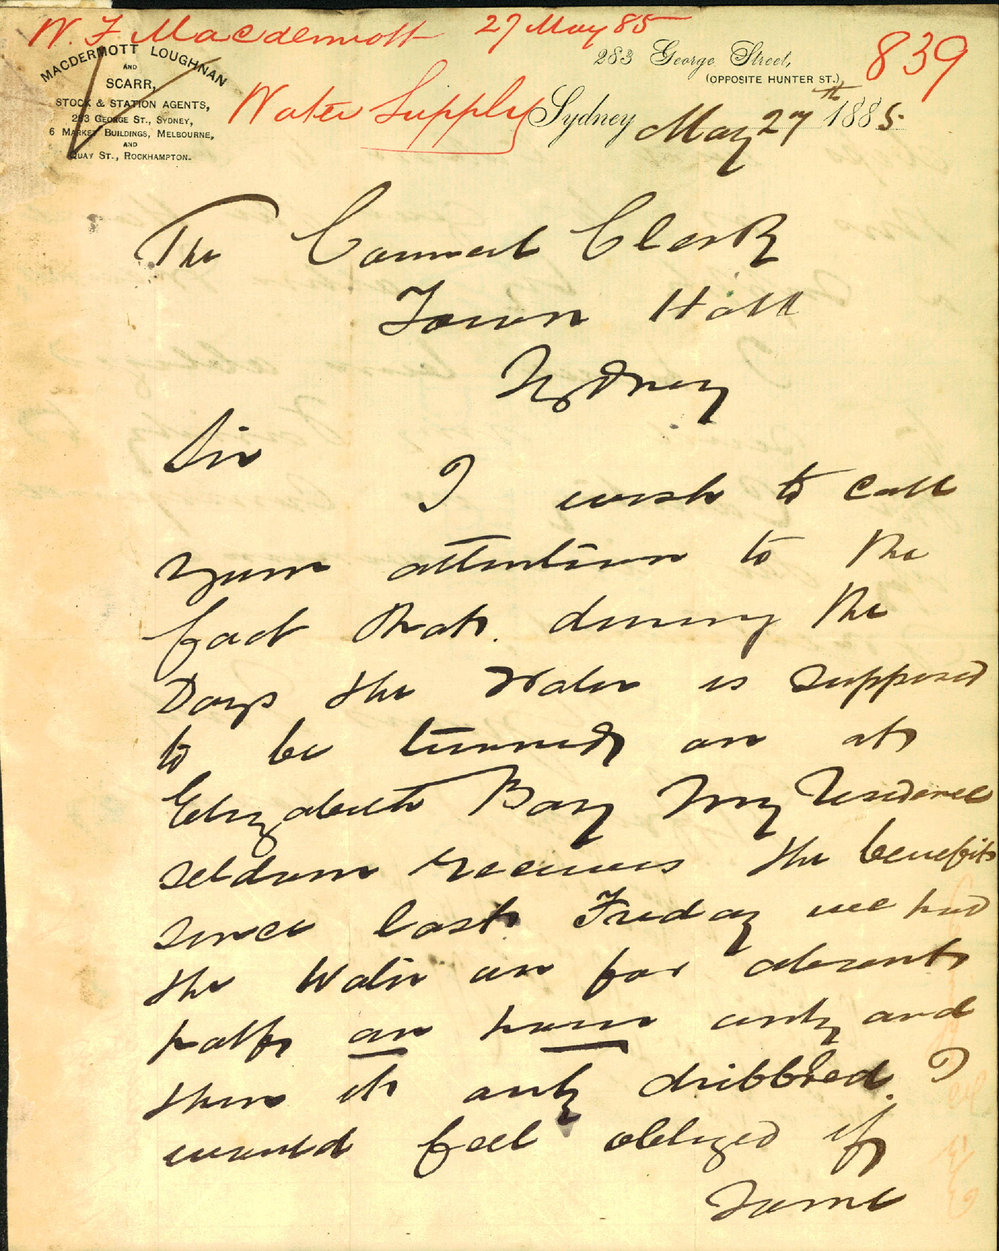 W. F Macdermott 27 May 85
839
Water Supply
MACDERMOTT LOUGHNAN
AND
SCARR,
STOCK & STATION AGENTS,
283 GEORGE ST., SYDNEY,
6 MARKET BUILDINGS, MELBOURNE,
AND
QUAY ST., ROCKHAMPTON.
283 George Street,
(OPPOSITE HUNTER ST.)
Sydney May 27th 1885
The Council Clerk
Town Hall
Sydney
Sir
I wish to call
your attention to the
fact that during the
Days the Water is supposed
to be turned on at
Elizabeth Bay my Residence
seldom receives the benefit
since last Friday we had
the Water on for about
half an hour only and
then it only dribbled. I
would feel obliged if
some